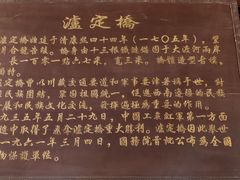 瀘定橋
瀘定橋始建于清康熙四十四年（一七〇五年），
橋身由十三根鐵鏈
長一百零一點六七米，寬三米。橋
瀘定橋曾以川藏交通要道和軍事要津著稱于世，對
民族團結，鞏固祖國統一，促進西南
展和民族文化交流，發揮過極為重要的作用。
一九三五年五月二十九日，中國工農紅軍第一方面
途中取得了飛奪瀘定橋重大勝利。瀘定橋因此
一九六一年三月四日，國務院首批公布為全國
物保護單位。